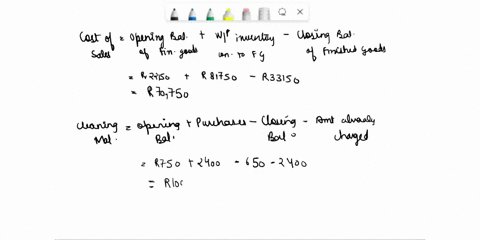 Cost of = Opening Bal. + W/P inventory - Closing Bal.
Sales of Fin. goods con. to F G of Finished Goods
= R22150 + R81750 - R33150
= R70,750
Cleaning = Opening + Purchases - Closing - Amt already
Mat. Bal. Bal. charged
= R750 + 2400 - 650 - 2400
= R10